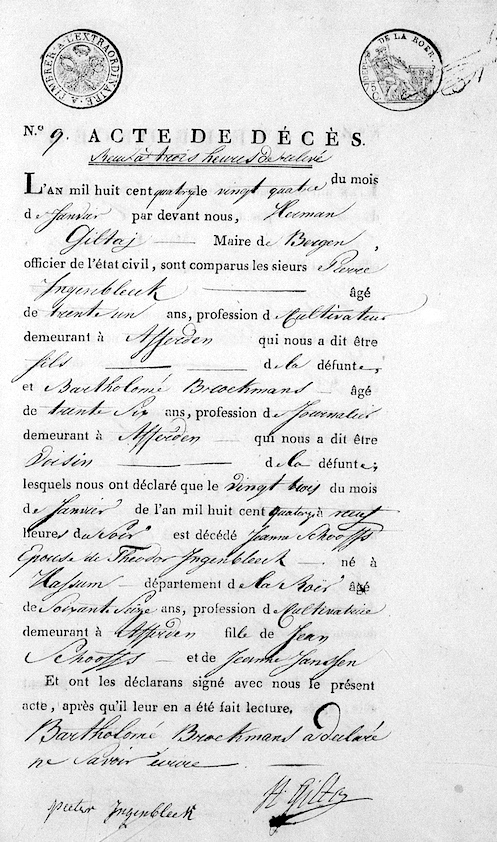 A TIMBRER A L'EXTRAORDINAIRE
DE LA ROER
N.º 9. ACTE DE DÉCÈS.
à trois heures de relevé
L'AN mil huit cent quatorze le vingt quatre du mois
de Janvier par devant nous, Herman
Giltaj — Maire de Bergen,
officier de l'état civil, sont comparus les sieurs Pierre
Ingenbleek — âgé
de trente un ans, profession d Cultivateur
demeurant à Afferden qui nous a dit être
fils — de la défunte,
et Bartholomé Broekmans — âgé
de trente Six ans, profession de Journalier
demeurant à Afferden — qui nous a dit être
Voisin — de la défunte;
lesquels nous ont déclaré que le vingt trois du mois
de Janvier de l'an mil huit cent quatorze à neuf
heures du Soir est décédé Jeanne Schooffs
Epouse de Theodor Ingenbleek — né à
Hassum — département d la Roër âgé
de Soixante Seize ans, profession d Cultivatrice
demeurant à Afferden fille de Jean
Schooffs — et de Jeanne Janssen
Et ont les déclarans signé avec nous le présent
acte, après qu'il leur en a été fait lecture,
Bartholomé Broekmans a déclaré
ne Savoir écrire —
H. Giltaj
pieter Ingenbleek